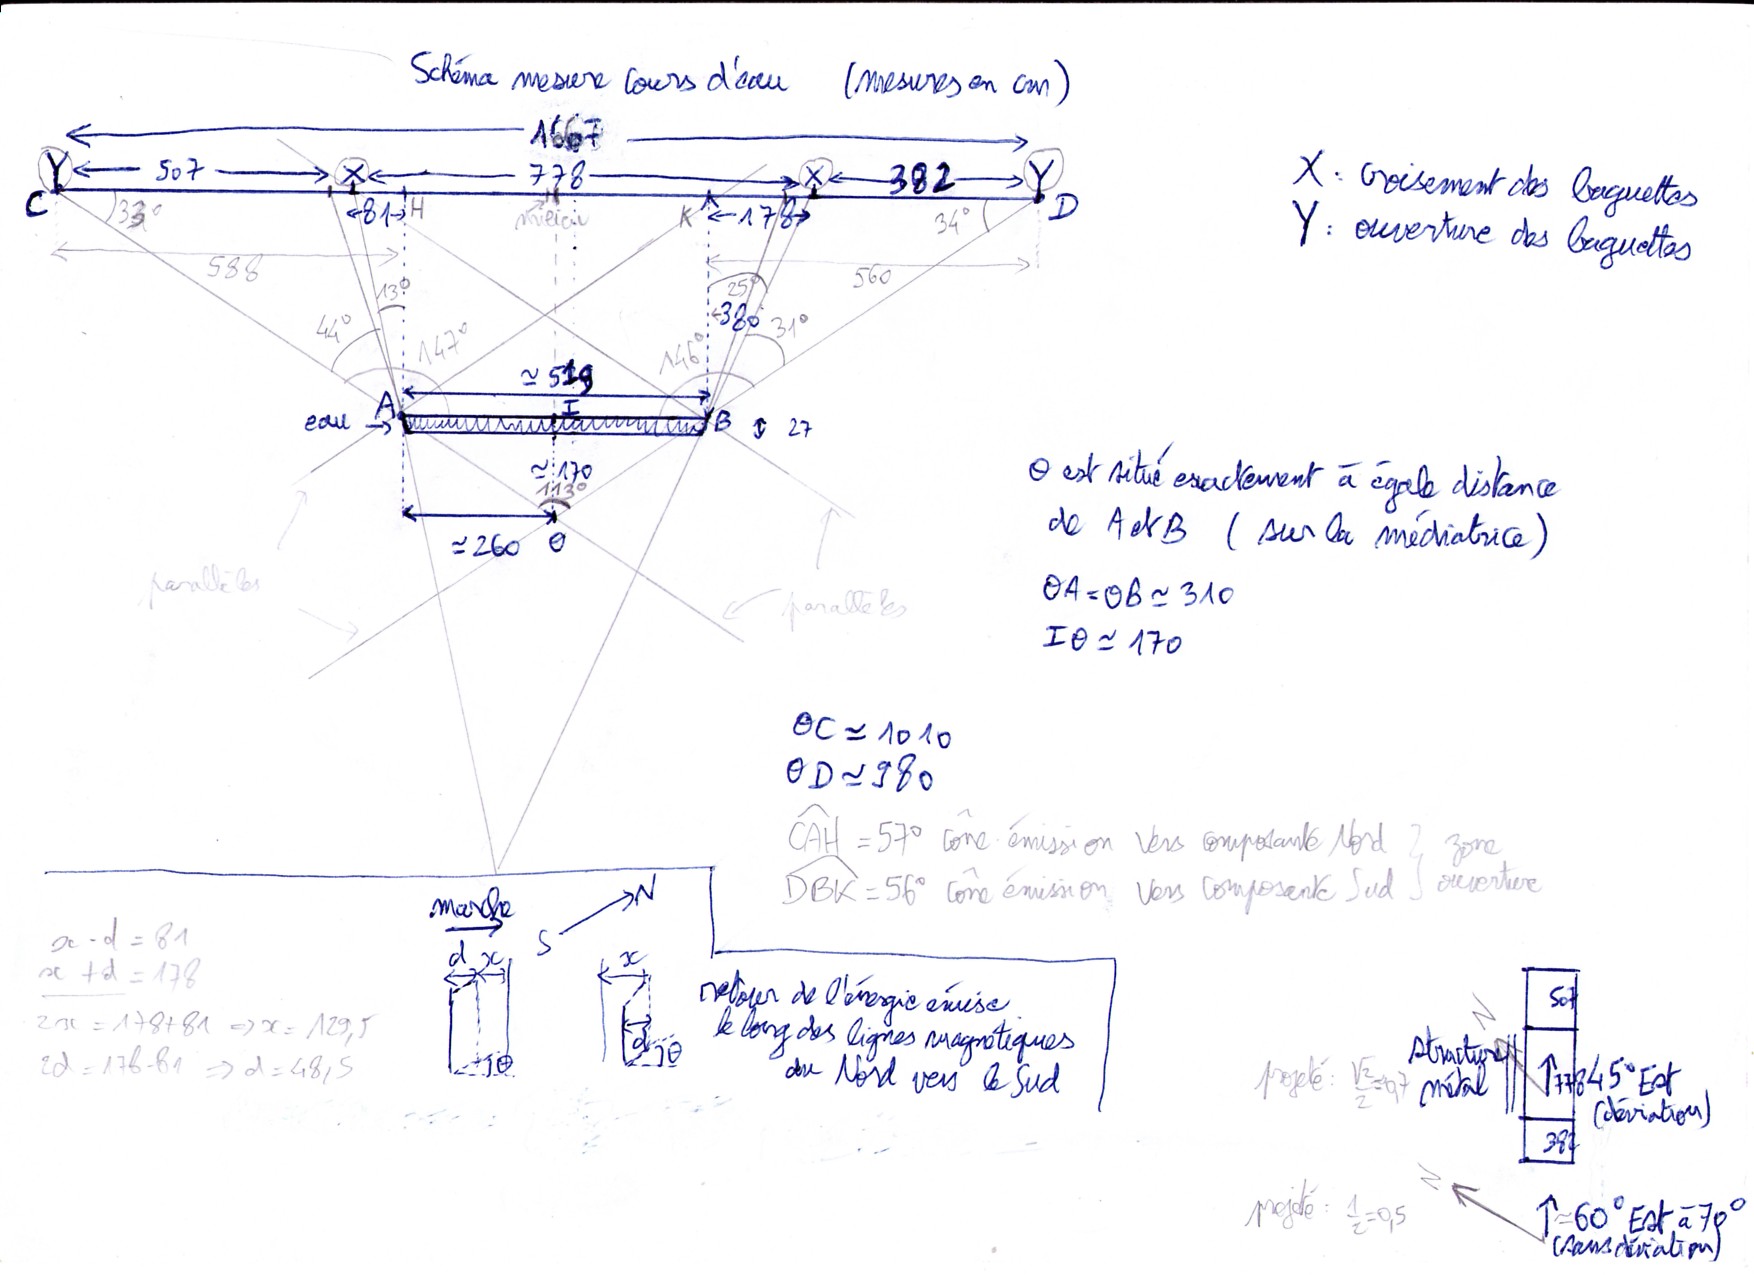 Schéma mesure cours d'eau (mesures en cm)
1667
Y 507 X 778 X 382 Y
C 33° 81 H milieu K 178 34° D
588 560
13° 25°
380
44° 147° 146° 31°
≃ 519
A I B
eau → 27
≃ 170
113°
≃ 260 θ
parallèles
parallèles
X : croisement des baguettes
Y : ouverture des baguettes
θ est situé exactement à égale distance
de A et B (sur la médiatrice)
θA = θB ≃ 310
Iθ ≃ 170
θC ≃ 1010
θD ≃ 980
CAH = 57° cône émission vers composante Nord } zone
DBK = 56° cône émission vers composante Sud } ouverture
marche
S N
d x x
d
θ θ
x - d = 81
x + d = 178
2x = 178+81 => x = 129,5
2d = 178-81 => d = 48,5
retour de l'énergie émise
le long des lignes magnétiques
du Nord vers le Sud
507
N
structure
métal
778 45° Est
(déviation)
projeté : √2/2=0,7
382
N
projeté : 1/2=0,5
≃60° Est à 70°
(sans déviation)